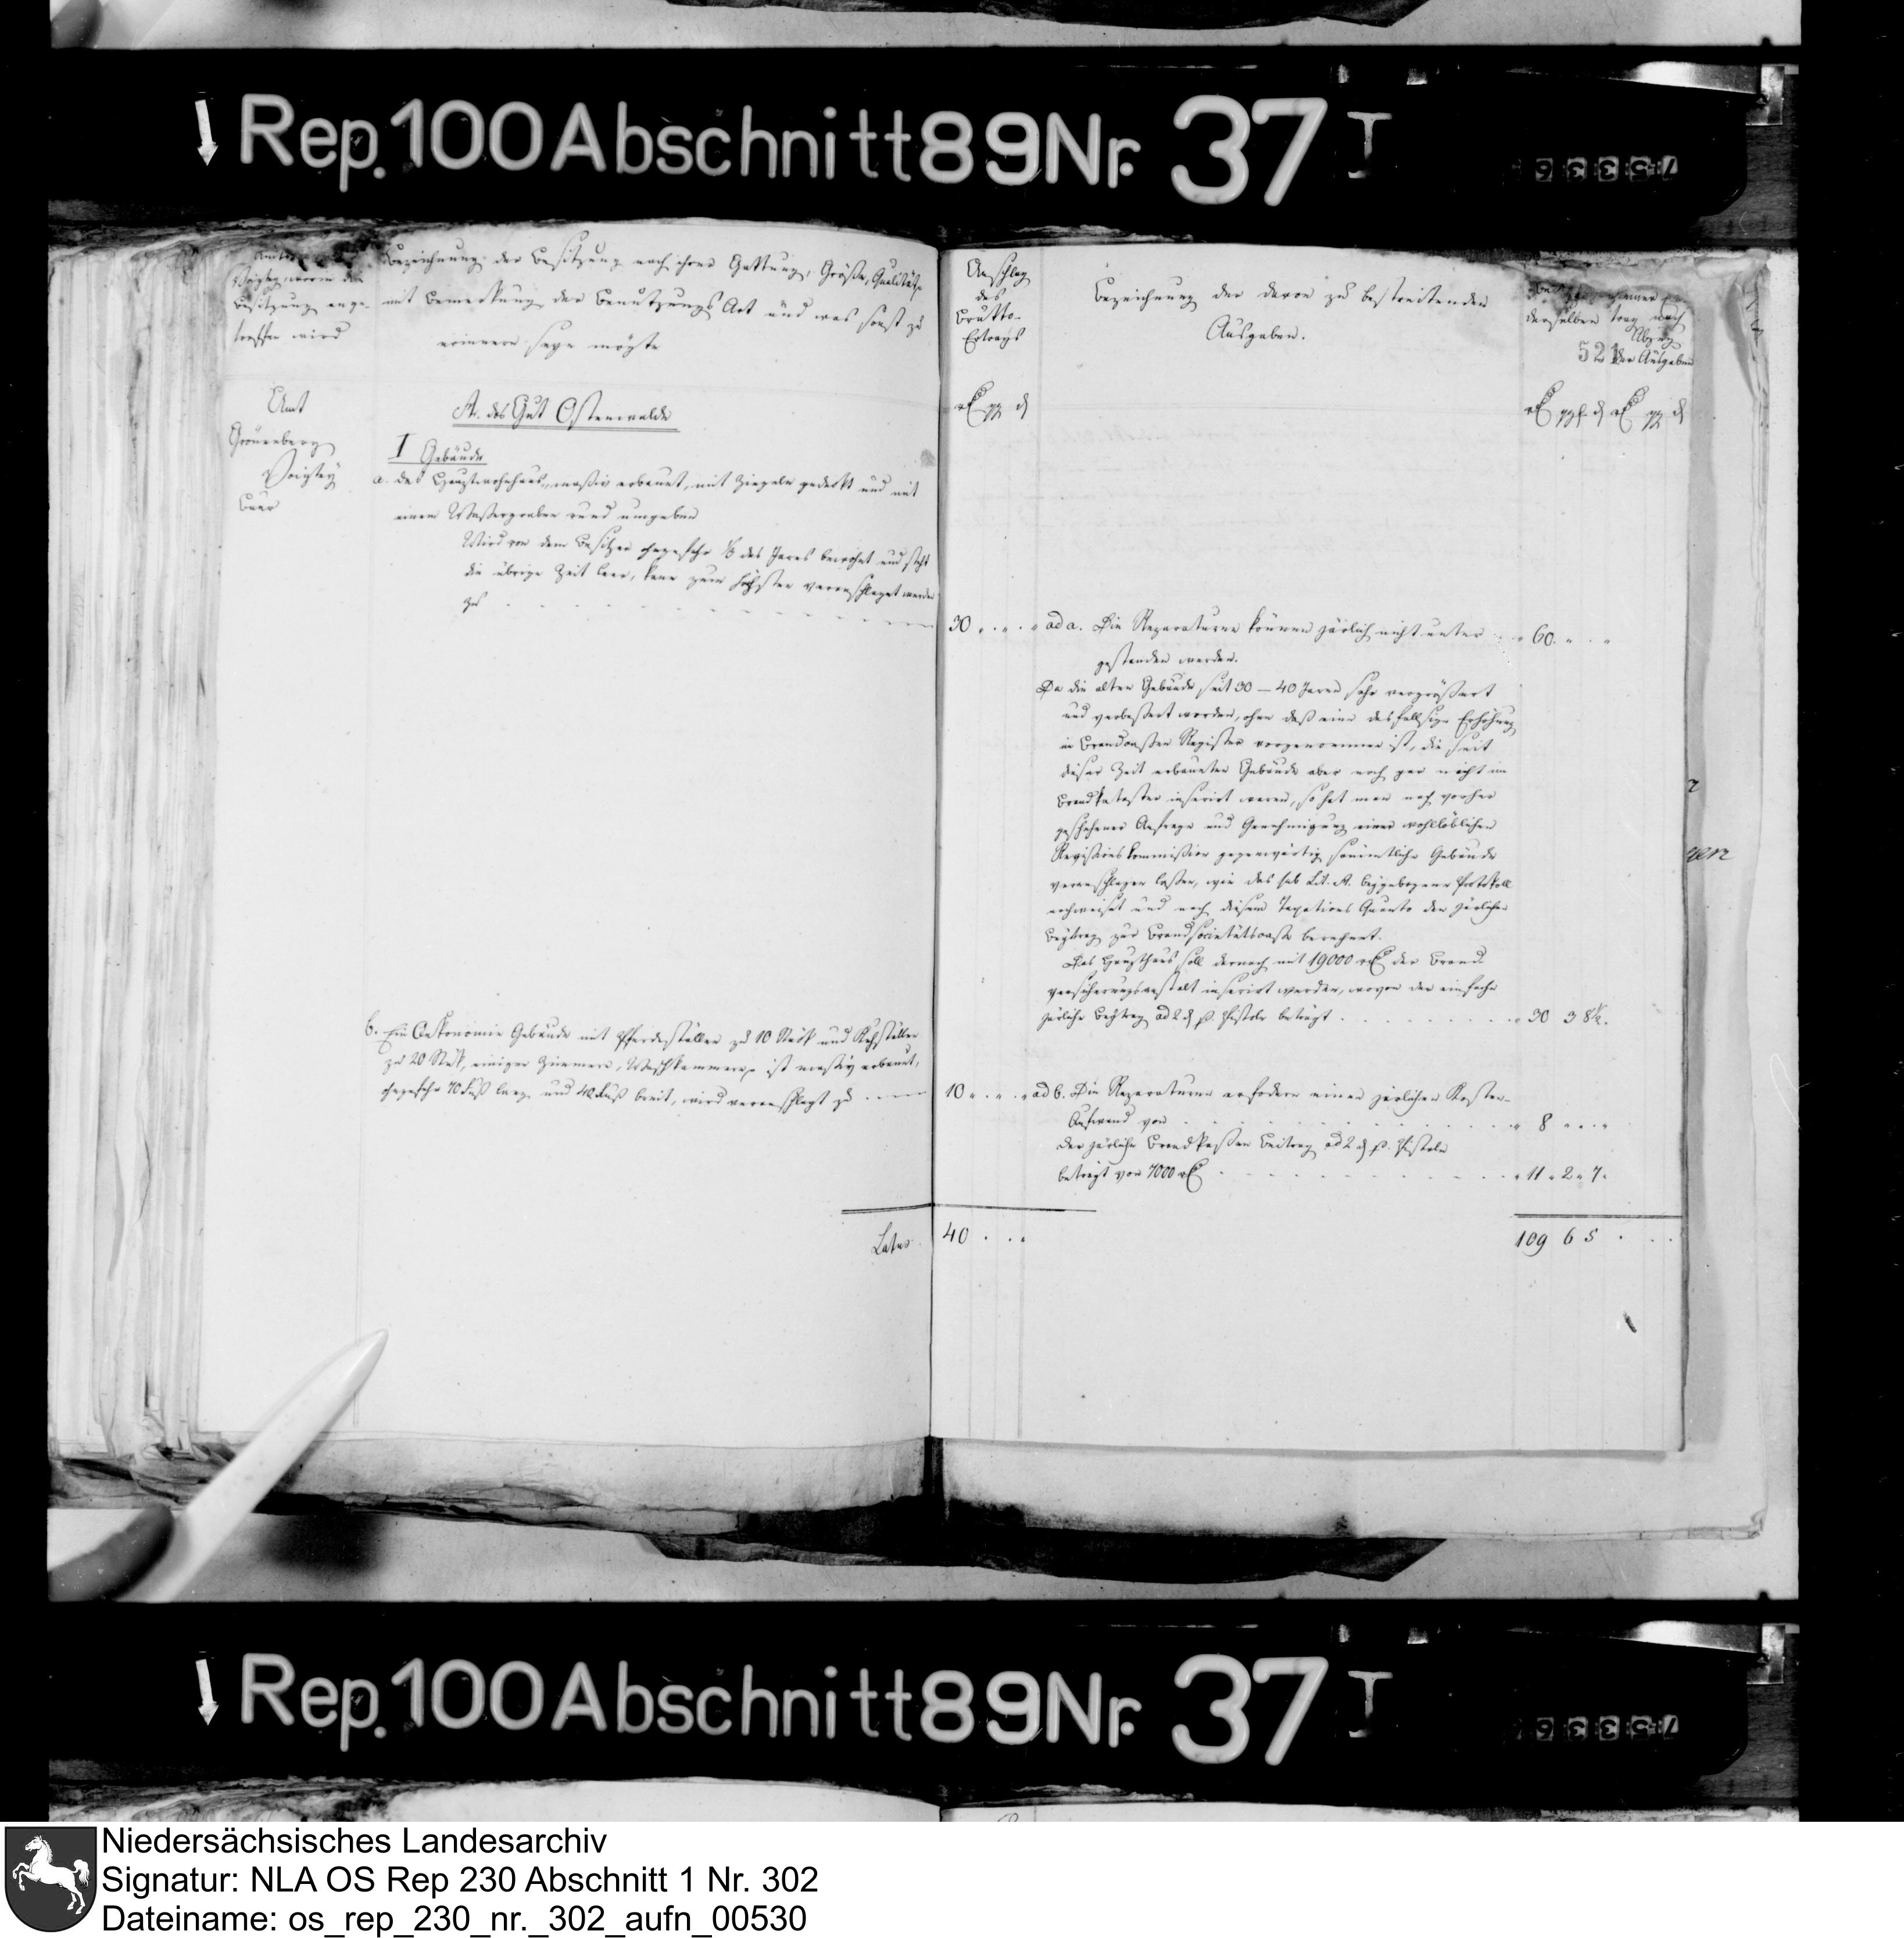 Rep. 100 Abschnitt 89 Nr. 37 I
75336
Aemter
Voigtey, worin die
Besitzung ange-
troffen wird
Bezeichnung der Besitzung nach ihrer Gattung, Größe, Qualität,
mit Bemerkung der Benutzungs Art und was sonst zu
erinnern seyn mögte
Amt
Grönenberg
Voigtey
Buer
A. das Gut Ostenwalde
I Gebäude
a. das Hauptwohnhaus, massiv erbauet, mit Ziegeln gedeckt und mit
einem Wassergraben rund umgeben
Wird von dem Besitzer ohngefehr ⅓ des Jares bewohnt und steht
die übrige Zeit leer, kann zum höchsten veranschlaget werden
zu
b. Ein Oekonomie Gebäude mit Pferdeställen zu 10 Stük und Kuhställen
zu 20 Stük, einigen Zimmern, Waschkammern ist massiv erbauet,
ohngefehr 70 Fuß lang und 40 Fuß breit, wird veranschlagt zu
Latus
Anschlag
des
Brutto-
Ertrags
30
10
40
Bezeichnung der davon zu bestreitenden
Ausgaben.
ad a. Die Reparaturen können järlich nicht unter 60.
gestanden werden.
Da die alten Gebäude seit 30 – 40 Jaren sehr vergrößert
und verbessert worden, ohne daß eine desfallsige Erhöhung
in Brandcassen Register vorgenommen ist, die seit
dieser Zeit erbaueten Gebäude aber noch gar nicht im
Brandkataster inserirt waren, so hat man nach vorher
geschehener Anfrage und Genehmigung einer wohllöblichen
Revisions Commission gegenwärtig sämmtliche Gebäude
veranschlagen lassen, wie das sub Lit. A. beygebogene Protokoll
nachweiset und nach diesem Taxations Quanto den järlichen
Beytrag zur Brandsocietätscasse berechnet.
Das Haupthaus soll darnach mit 19000 der Brand-
versicherungsanstalt inserirt werden, wovon der einfache
järliche Beytrag ad 2 d p. Pistole beträgt 30 3 8½.
ad b. Die Reparaturen erfodern einen jerlichen Kosten-
Aufwand von 8
der järliche Brandkassen Beitrag ad 2 d p. Pistole
beträgt von 7000 11 2 7.
109 6 5
derselben
nach
Abzug
der Ausgaben
521
Rep. 100 Abschnitt 89 Nr. 37 I
75336
Niedersächsisches Landesarchiv
Signatur: NLA OS Rep 230 Abschnitt 1 Nr. 302
Dateiname: os_rep_230_nr._302_aufn_00530